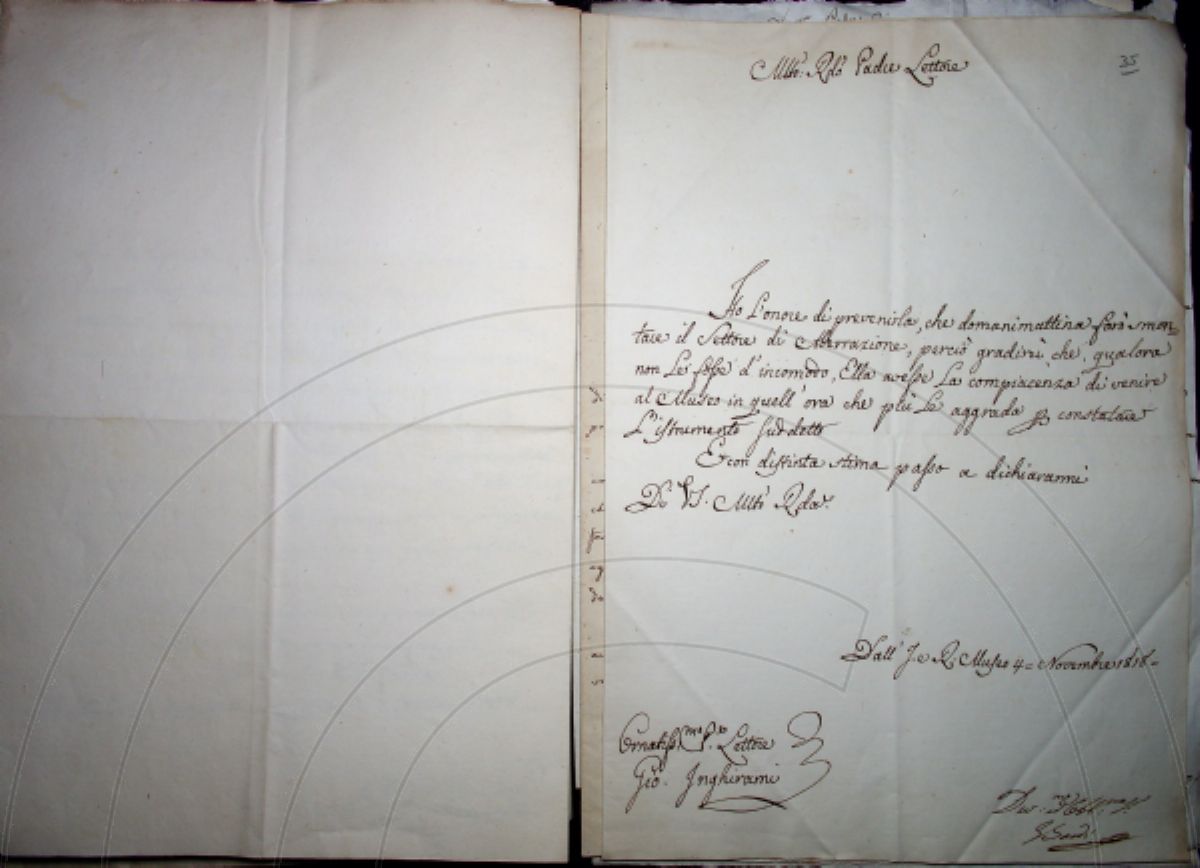 35
Mlto: Rdo Padre Lettore
Ho l'onore di prevenirla, che domanimattina farò smon-
tare il Settore di Aberrazione, perciò gradirei che, qualora
non Le fosse d'incomodo, Ella avesse La compiacenza di venire
al Museo in quell'ora che più Le aggrada constatare
L'istrumento suddetto
E con distinta stima passo a dichiararmi
Di VS. Mlto Rda.
Dall' I. e R. Museo 4= Novembre 1818=
Ornatiss.mo P.re Lettore
Gio. Inghirami